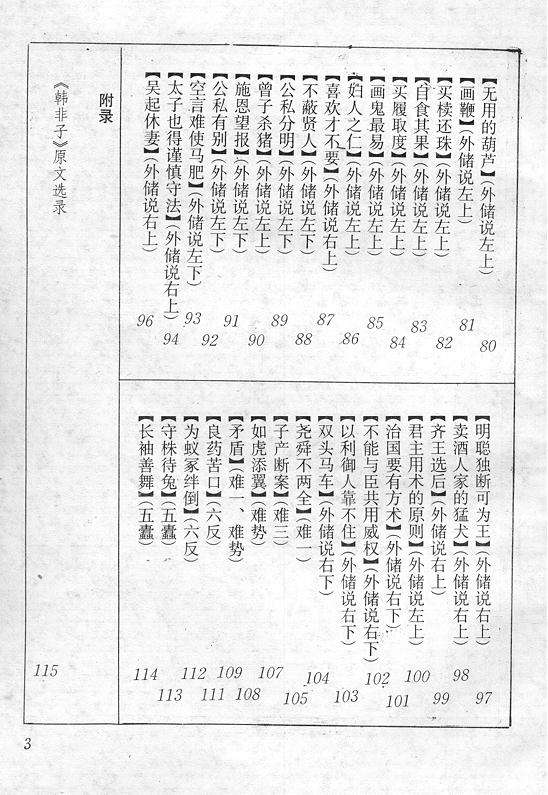 【无用的葫芦】(外储说左上) 80
【画鞭】(外储说左上) 81
【买椟还珠】(外储说左上) 82
【自食其果】(外储说左上) 83
【买履取度】(外储说左上) 84
【画鬼最易】(外储说左上) 85
【妇人之仁】(外储说左上) 86
【喜欢才不要】(外储说右上) 87
【不蔽贤人】(外储说左下) 88
【公私分明】(外储说左下) 89
【曾子杀猪】(外储说左上) 90
【施恩望报】(外储说左下) 91
【公私有别】(外储说左下) 92
【空言难使马肥】(外储说左下) 93
【太子也得谨慎守法】(外储说右上) 94
【吴起休妻】(外储说右上) 96
【明聪独断可为王】(外储说右上) 97
【卖酒人家的猛犬】(外储说右上) 98
【齐王选后】(外储说右上) 99
【君主用术的原则】(外储说左上) 100
【治国要有方术】(外储说右下) 101
【不能与臣共用威权】(外储说右下) 102
【以利御人靠不住】(外储说右下) 103
【双头马车】(外储说右下) 104
【尧舜不两全】(难一) 105
【子产断案】(难三) 107
【如虎添翼】(难势) 108
【矛盾】(难一、难势) 109
【良药苦口】(六反) 111
【为蚁冢绊倒】(六反) 112
【守株待兔】(五蠹) 113
【长袖善舞】(五蠹) 114
附录
《韩非子》原文选录 115
3